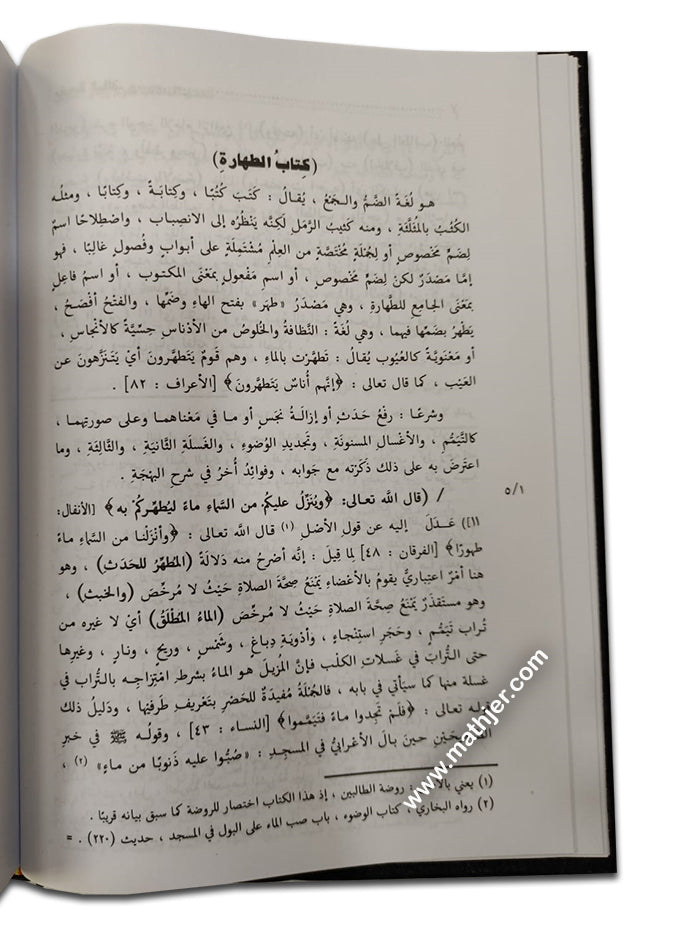 (كِتابُ الطهارةِ)
هـو لُغَةً الضَّمُّ والـجَمْعُ ، يُقـالُ : كَتَبَ كُتْبًا ، وكِتابَـةً ، وكِتابًا ، ومثلُـه
الكُثُـبُ بالمُثَلَّثَةِ ، ومنه كَثِيبُ الرَّمْلِ لَكِنَّه يَنْظُرُه إلى الانصِبابِ ، واصْطِلاحًا اسمٌ
لِضَمٍّ مَخْصُوصٍ أو لِجُمْلَةٍ مُخْتَصَّةٍ من العِلْمِ مُشْتَمِلَةٍ على أبـوابٍ وفُصولٍ غالِبًا ، فهو
إمَّا مَصْدَرٌ لكن لِضَمٍّ مَخْصُوصٍ ، أو اسمِ مَفْعولٍ بمَعْنَى المكتـوبِ ، أو اسمُ فاعِلٍ
بمَعْنَى الجامِعِ للطَّهارةِ ، وهي مَصْدَرُ «طهَر» بفتح الهاءِ وضَمِّها ، والفتْحُ أفْصَحُ ،
يَطْهُر بضَمِّها فيهما ، وهي لُغَةً : النَّظافةُ والخُلوصُ من الأدْناسِ حِسِّيَّةً كالأنْجاسِ ،
أو مَعْنَوِيَّةً كالعُيُوبِ يُقالُ : تَطَهَّرْت بالماءِ ، وهم قَومٌ يَتَطهَّرونَ أيْ يَتَنَزَّهونَ عن
العَيْبِ ، كما قال تعالى : ﴿إنَّهم أُناسٌ يَتَطهَّرونَ﴾ [الأعراف : ٨٢] .
وشرعًا : رفْعُ حَدَثٍ أو إزالَـةُ نَجَسٍ أو مـا في مَعْناهمـا وعلى صورتِهما ،
كالتَّيَمُّمِ ، والأغْسالِ المسنونَةِ ، وتجديدِ الوُضوءِ ، والغَسلَةِ الثَّانيَةِ ، والثَّالِثةِ ، وما
اعترَضَ به على ذلك ذَكَرْته مع جَوابه ، وفوائِدُ أُخرُ في شرحِ البَهْجَةِ .
٥/١
/ (قال الله تعالى: ﴿ويُنَزِّلُ عليكُم من السَّماءِ ماءً لِيُطهِّركُمْ به﴾ [الأنفال:
١١]) عَـدَلَ إليه عن قَولِ الأصْلِ (١) قال اللَّه تعالى : ﴿وأنْزَلْنا من السَّماءِ ماءً
طهورًا﴾ [الفرقان : ٤٨] لِما قِيلَ : إنَّه أصْرحُ منه دَلالَةً (المُطَهِّرُ للحَدَثِ) ، وهو
هنا أمْرٌ اعتِباريٌّ يقومُ بالأعْضاءِ يَمْنَعُ صِحَّةَ الصلاةِ حَيْثُ لا مُرخِّصَ (والخَبَثِ) ،
وهو مستَقْذَرٌ يَمْنَعُ صِحَّةَ الصلاةِ حَيْثُ لا مُرخِّصَ (الماءُ المُطْلَقُ) أيْ لا غيره من
تُرابِ تَيَمُّمٍ ، وحَجَرِ استِنْجاءٍ ، وأدْويَةِ دِباغٍ ، وشَمْسٍ ، وريحٍ ، ونـارٍ ، وغيرِها
حتى التُّرابَ في غَسلاتِ الكلْبِ فإنَّ المُزيلَ هـو المـاءُ بشرطِ امْتِزاجِـه بالتُّراب في
غسلة منها كما سيَأتي في بابه ، فالجُمْلَةُ مُفيدَةٌ للحَصْرِ بتَعْريفِ طَرفَيْها ، ودَليلُ ذلك
قوله تعالى : ﴿فلَمْ تَجِدوا ماءً فتَيَمَّموا﴾ [النساء : ٤٣] ، وقولُـه ﷺ في خبَرِ
حينَ بالَ الأعْرابيُّ في المسجِدِ : «صُبُّوا عليه ذَنوبًا من ماءٍ» (٢) ،
(١) يعني : روضة الطالبين ، إذ هذا الكتاب اختصار للروضة كما سبق بيانه قريبًا .
(٢) رواه البخاري ، كتاب الوضوء ، باب صب الماء على البول في المسجد ، حديث (٢٢٠) . =
www.mathjer.com